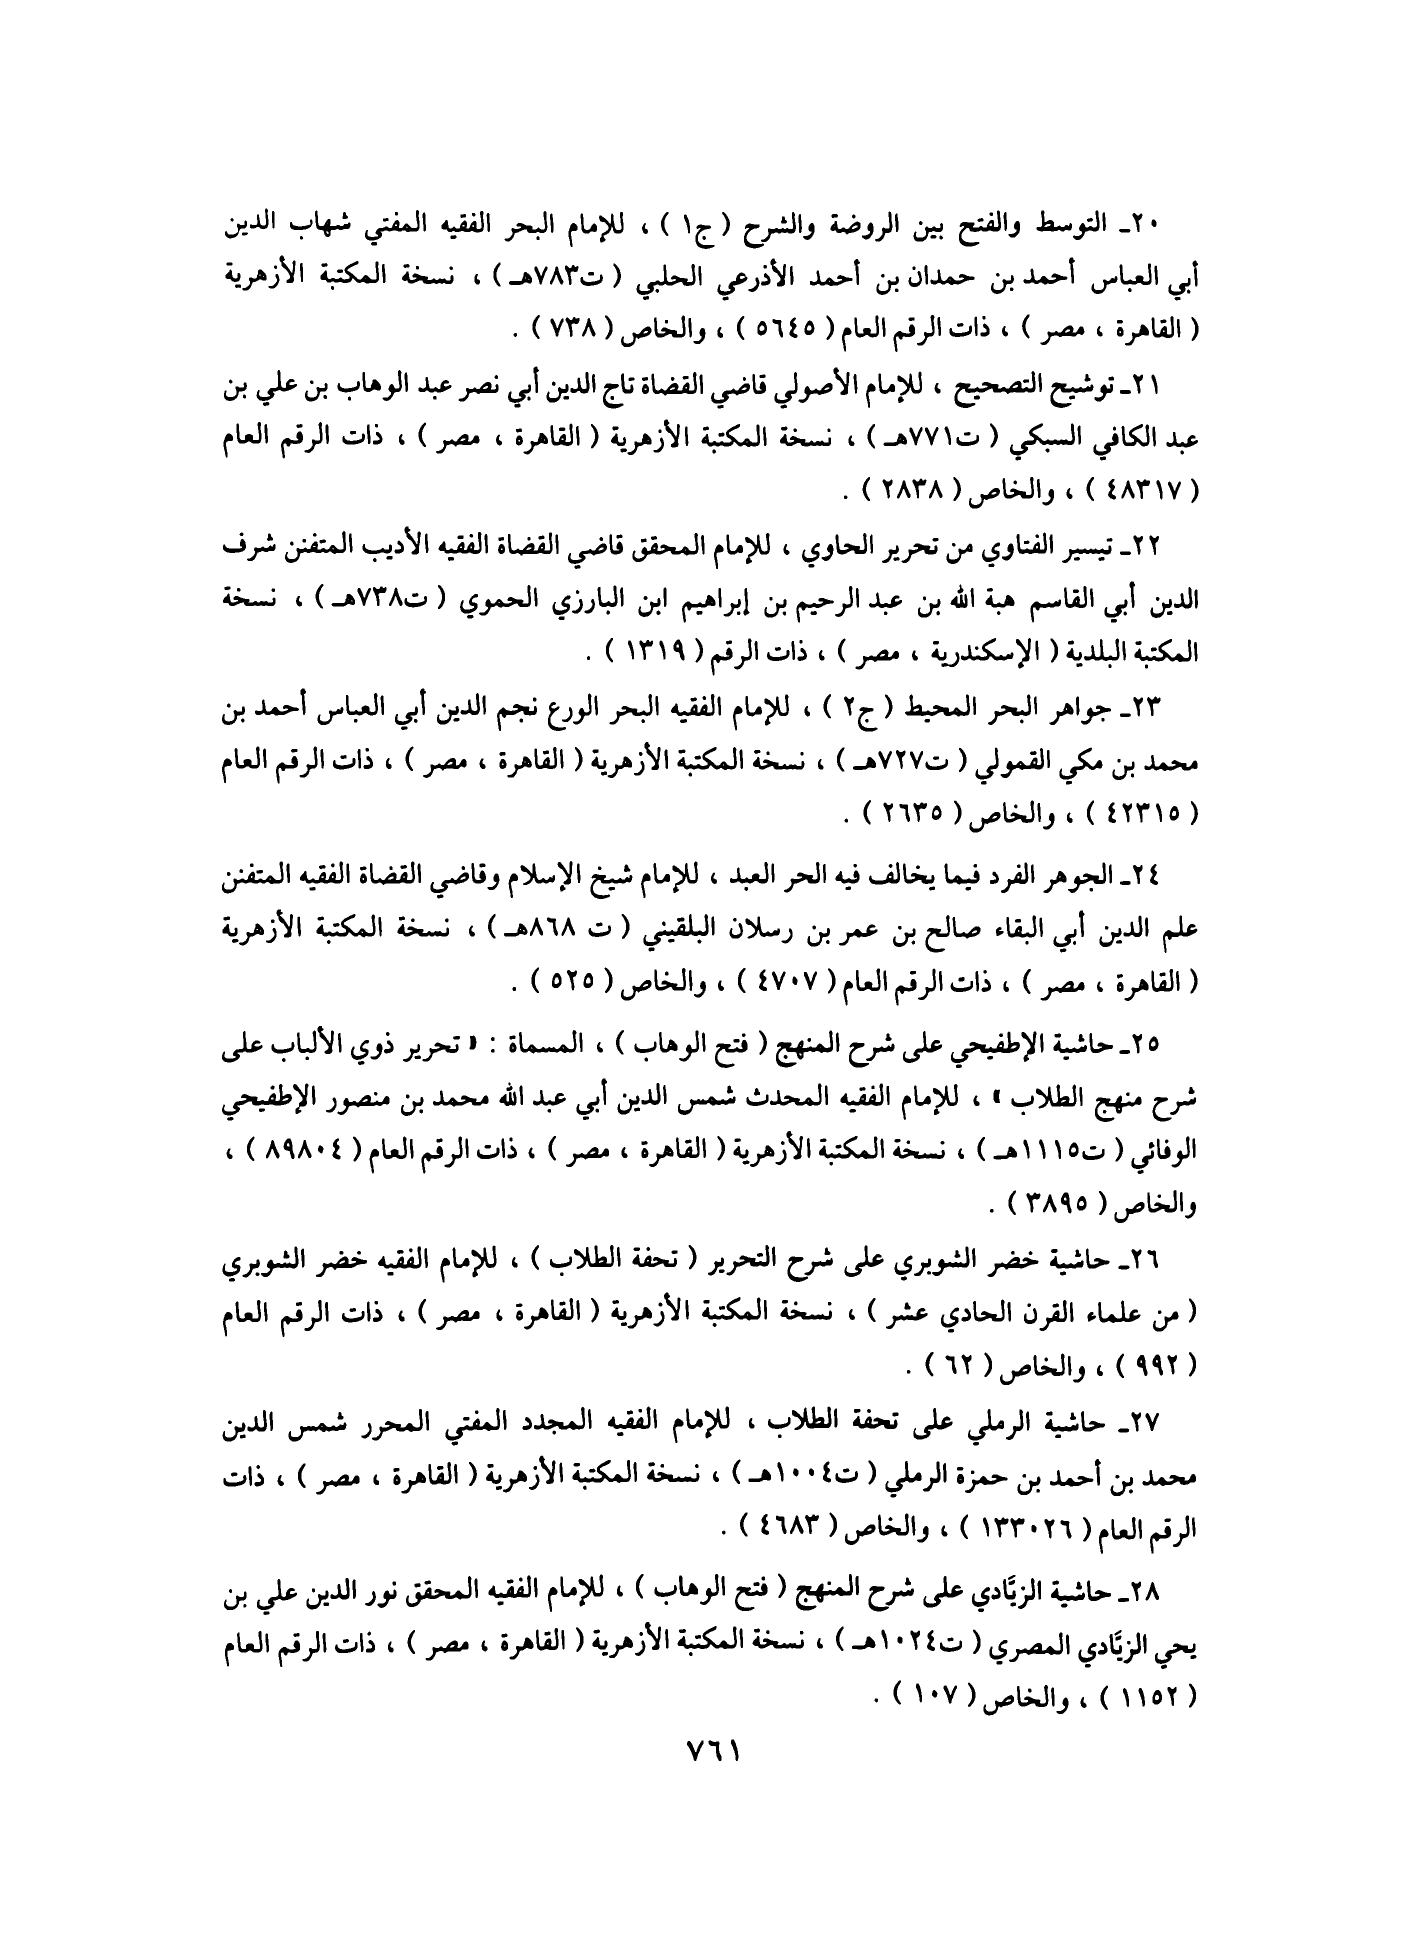 ٢٠ـ التوسط والفتح بين الروضة والشرح ( ج١ ) ، للإمام البحر الفقيه المفتي شهاب الدين
أبي العباس أحمد بن حمدان بن أحمد الأذرعي الحلبي ( ت٧٨٣هـ ) ، نسخة المكتبة الأزهرية
( القاهرة ، مصر ) ، ذات الرقم العام ( ٥٦٤٥ ) ، والخاص ( ٧٣٨ ) .
٢١ـ توشيح التصحيح ، للإمام الأصولي قاضي القضاة تاج الدين أبي نصر عبد الوهاب بن علي بن
عبد الكافي السبكي ( ت٧٧١هـ ) ، نسخة المكتبة الأزهرية ( القاهرة ، مصر ) ، ذات الرقم العام
( ٤٨٣١٧ ) ، والخاص ( ٢٨٣٨ ) .
٢٢ـ تيسير الفتاوي من تحرير الحاوي ، للإمام المحقق قاضي القضاة الفقيه الأديب المتفنن شرف
الدين أبي القاسم هبة الله بن عبد الرحيم بن إبراهيم ابن البارزي الحموي ( ت٧٣٨هـ ) ، نسخة
المكتبة البلدية ( الإسكندرية ، مصر ) ، ذات الرقم ( ١٣١٩ ) .
٢٣ـ جواهر البحر المحيط ( ج٢ ) ، للإمام الفقيه البحر الورع نجم الدين أبي العباس أحمد بن
محمد بن مكي القمولي ( ت٧٢٧هـ ) ، نسخة المكتبة الأزهرية ( القاهرة ، مصر ) ، ذات الرقم العام
( ٤٢٣١٥ ) ، والخاص ( ٢٦٣٥ ) .
٢٤ـ الجوهر الفرد فيما يخالف فيه الحر العبد ، للإمام شيخ الإسلام وقاضي القضاة الفقيه المتفنن
علم الدين أبي البقاء صالح بن عمر بن رسلان البلقيني ( ت ٨٦٨هـ ) ، نسخة المكتبة الأزهرية
( القاهرة ، مصر ) ، ذات الرقم العام ( ٤٧٠٧ ) ، والخاص ( ٥٢٥ ) .
٢٥ـ حاشية الإطفيحي على شرح المنهج ( فتح الوهاب ) ، المسماة : « تحرير ذوي الألباب على
شرح منهج الطلاب » ، للإمام الفقيه المحدث شمس الدين أبي عبد الله محمد بن منصور الإطفيحي
الوفائي ( ت١١١٥هـ ) ، نسخة المكتبة الأزهرية ( القاهرة ، مصر ) ، ذات الرقم العام ( ٨٩٨٠٤ ) ،
والخاص ( ٣٨٩٥ ) .
٢٦ـ حاشية خضر الشوبري على شرح التحرير ( تحفة الطلاب ) ، للإمام الفقيه خضر الشوبري
( من علماء القرن الحادي عشر ) ، نسخة المكتبة الأزهرية ( القاهرة ، مصر ) ، ذات الرقم العام
( ٩٩٢ ) ، والخاص ( ٦٢ ) .
٢٧ـ حاشية الرملي على تحفة الطلاب ، للإمام الفقيه المجدد المفتي المحرر شمس الدين
محمد بن أحمد بن حمزة الرملي ( ت١٠٠٤هـ ) ، نسخة المكتبة الأزهرية ( القاهرة ، مصر ) ، ذات
الرقم العام ( ١٣٣٠٢٦ ) ، والخاص ( ٤٦٨٣ ) .
٢٨ـ حاشية الزيَّادي على شرح المنهج ( فتح الوهاب ) ، للإمام الفقيه المحقق نور الدين علي بن
يحي الزيَّادي المصري ( ت١٠٢٤هـ ) ، نسخة المكتبة الأزهرية ( القاهرة ، مصر ) ، ذات الرقم العام
( ١١٥٢ ) ، والخاص ( ١٠٧ ) .
٧٦١